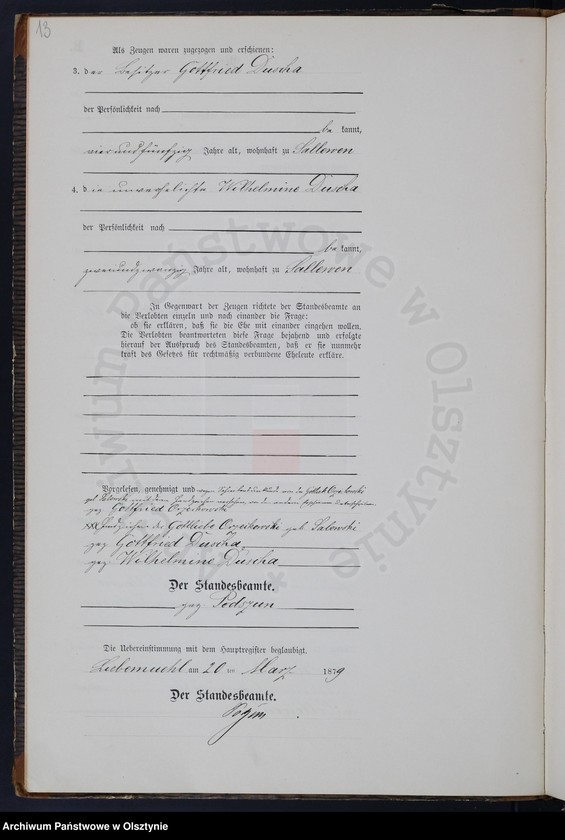 13
Als Zeugen waren zugezogen und erschienen:
3. der Besitzer Gottfried Duscha
der Persönlichkeit nach
be kannt,
vierundfünfzig Jahre alt, wohnhaft zu Sallewen
4. die unverehelichte Wilhelmine Duscha
der Persönlichkeit nach
be kannt,
zweiundzwanzig Jahre alt, wohnhaft zu Sallewen
In Gegenwart der Zeugen richtete der Standesbeamte an
die Verlobten einzeln und nach einander die Frage:
ob sie erklären, daß sie die Ehe mit einander eingehen wollen.
Die Verlobten beantworteten diese Frage bejahend und erfolgte
hierauf der Ausspruch des Standesbeamten, daß er sie nunmehr
kraft des Gesetzes für rechtmäßig verbundene Eheleute erkläre.
Vorgelesen, genehmigt und wegen
mit dem Handzeichen versehen, von den andern
gez Gottfried
XXX Handzeichen der Gottliebe geb Salewski
gez Gottfried Duscha
gez Wilhelmine Duscha
Der Standesbeamte.
gez Podszun
Die Uebereinstimmung mit dem Hauptregister beglaubigt.
Liebemuehl am 20 ten März 1879
Der Standesbeamte.
Archiwum Państwowe w Olsztynie
Archiwum Państwowe w Olsztynie